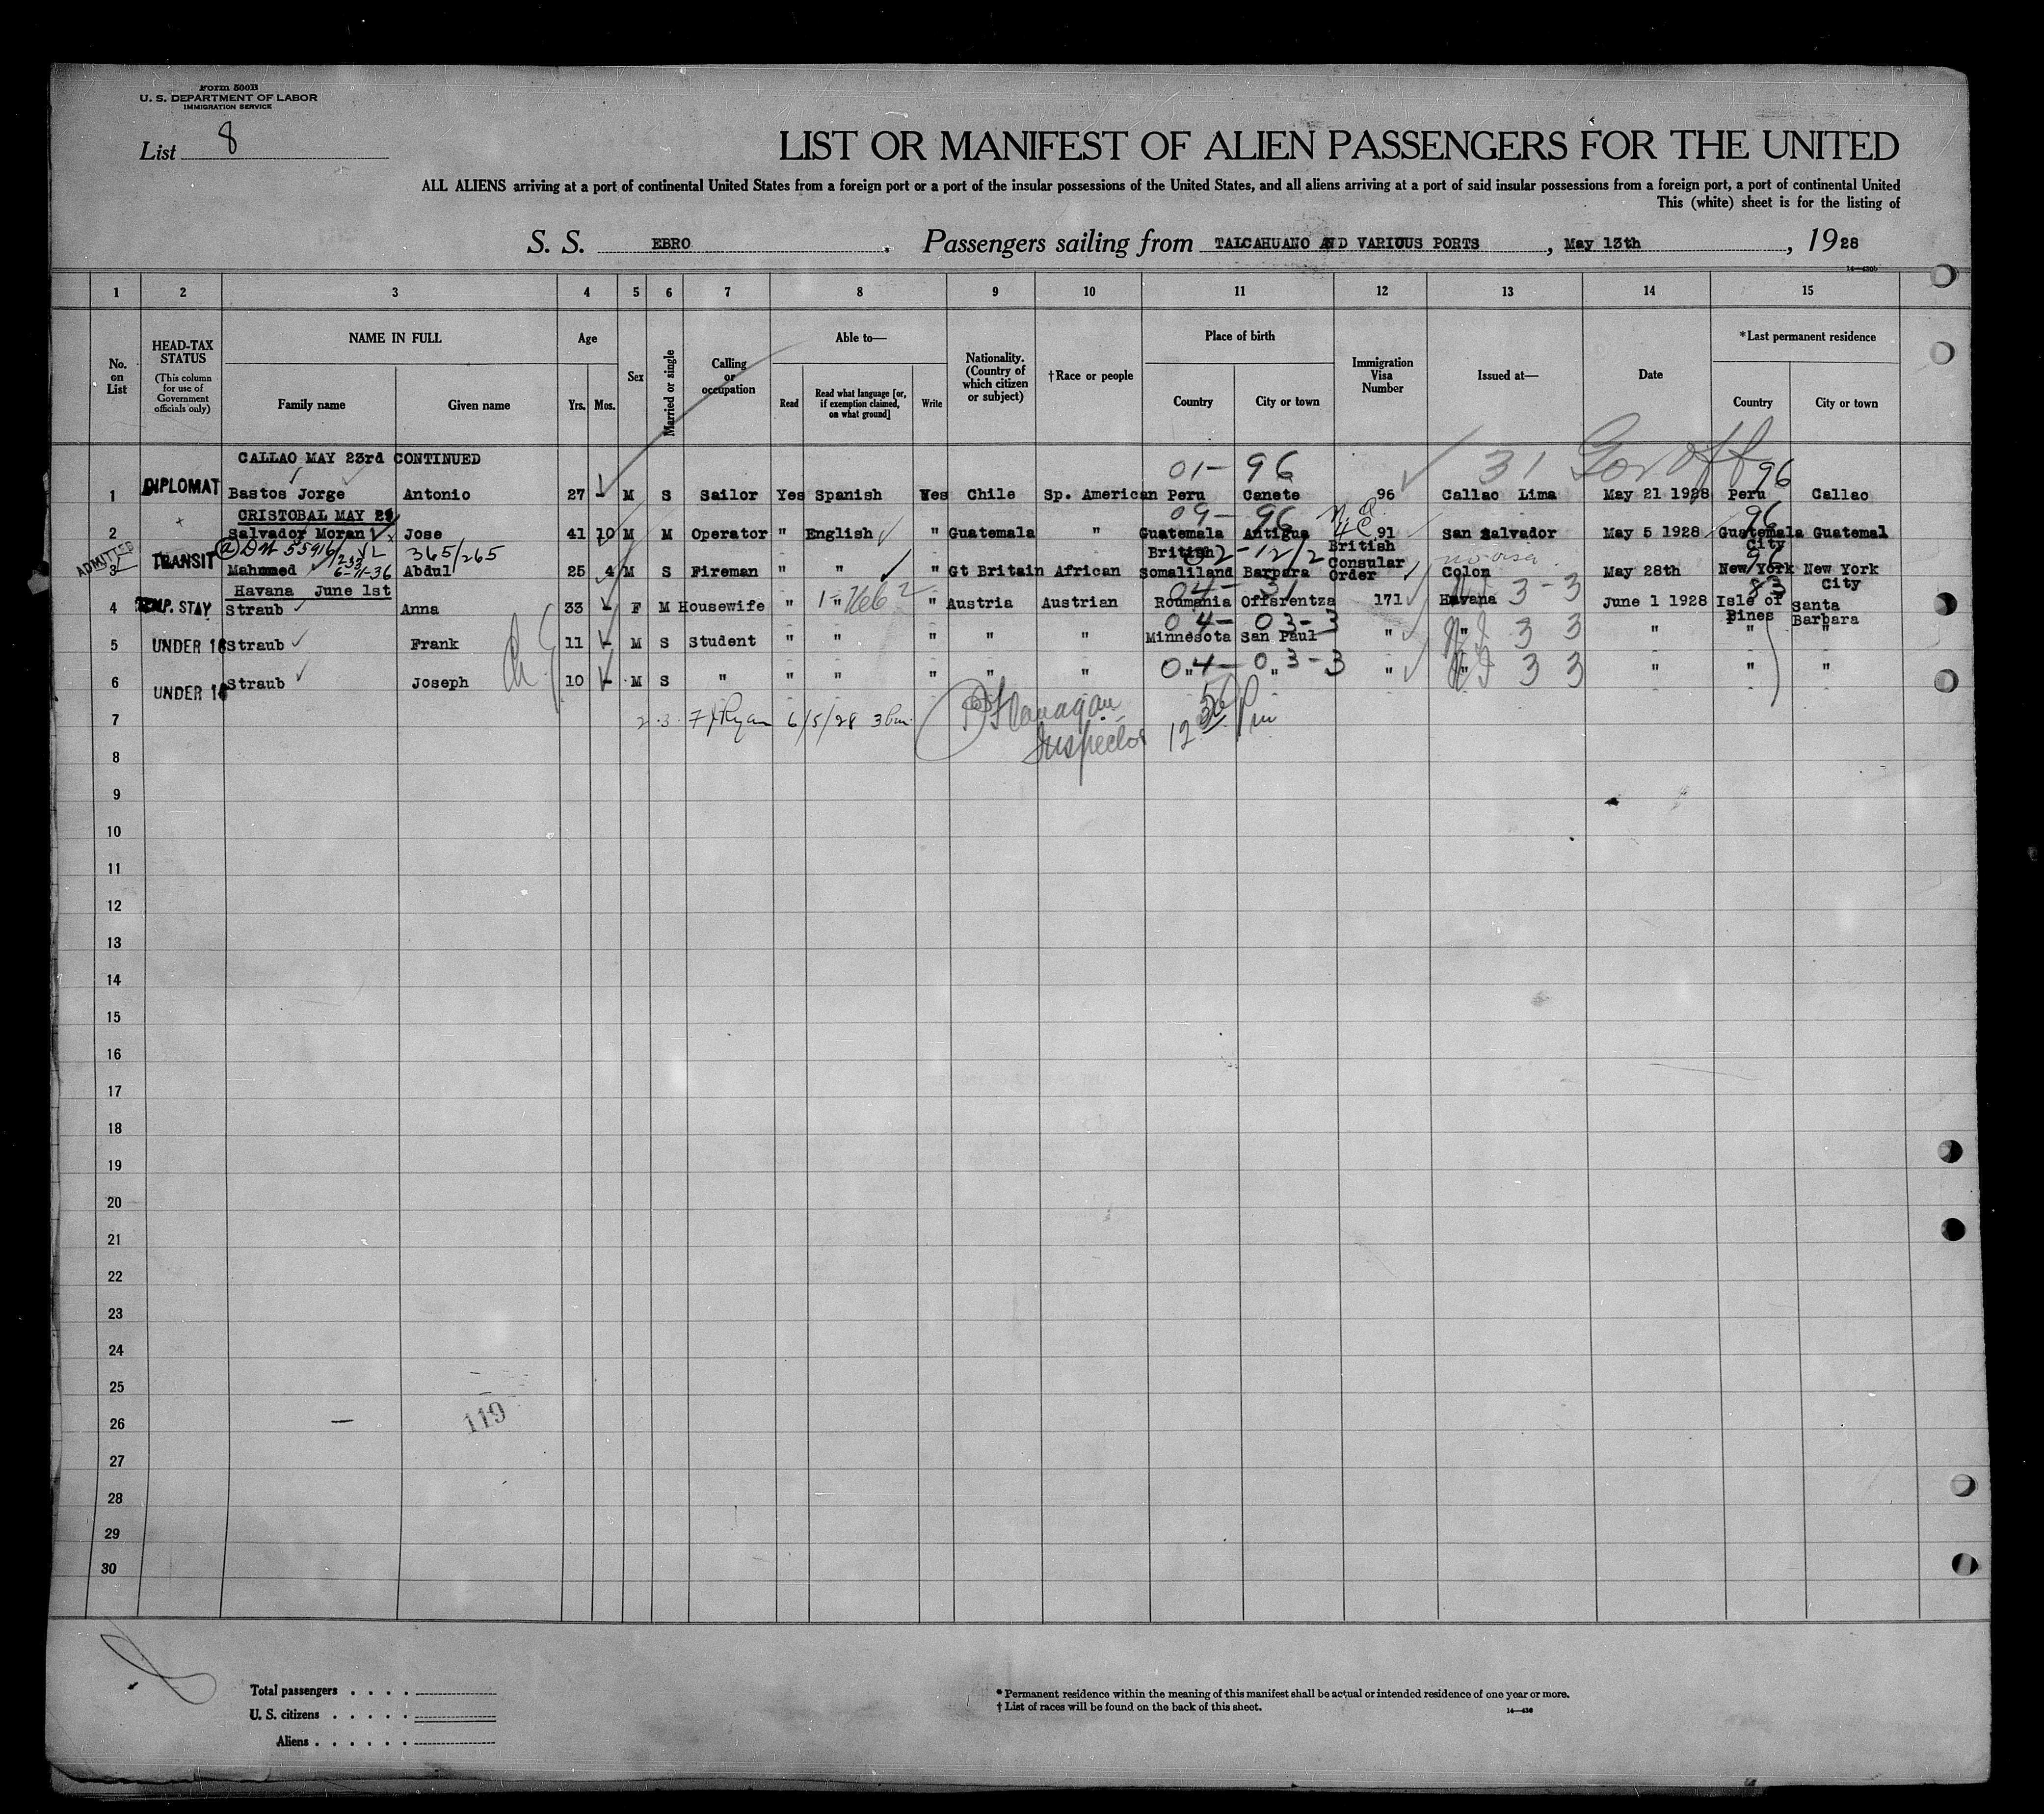 Form 500B
U. S. DEPARTMENT OF LABOR
IMMIGRATION SERVICE
List 8
LIST OR MANIFEST OF ALIEN PASSENGERS FOR THE UNITED
ALL ALIENS arriving at a port of continental United States from a foreign port or a port of the insular possessions of the United States, and all aliens arriving at a port of said insular possessions from a foreign port, a port of continental United
This (white) sheet is for the listing of
S. S. EBRO. Passengers sailing from TALCAHUANO AND VARIOUS PORTS, May 13th, 1928
14—430b
1 2 3 4 5 6 7 8 9 10 11 12 13 14 15
No. on List
HEAD-TAX STATUS (This column for use of Government officials only)
NAME IN FULL
Family name Given name
Age
Yrs. Mos.
Sex
Married or single
Calling or occupation
Able to—
Read Read what language [or, if exemption claimed, on what ground] Write
Nationality. (Country of which citizen or subject)
†Race or people
Place of birth
Country City or town
Immigration Visa Number
Issued at—
Date
*Last permanent residence
Country City or town
CALLAO MAY 23rd CONTINUED
01- 96 31 96
1 DIPLOMAT Bastos Jorge Antonio 27 - M S Sailor Yes Spanish Yes Chile Sp. American Peru Canete 96 Callao Lima May 21 1928 Peru Callao
CRISTOBAL MAY 29
09- 96 96
2 Salvador Moran Jose 41 10 M M Operator " English " Guatemala " Guatemala Antigua 91 San Salvador May 5 1928 Guatemala City Guatemal
55916/233 365/265
6-11-36
ADMITTED
3 TRANSIT Mahomed Abdul 25 4 M S Fireman " " " Gt Britain African British Somaliland Barbara British Consular Order Colon no visa May 28th New York New York City
Havana June 1st
04- 31 3-3 83
4 TEMP. STAY Straub Anna 33 - F M Housewife " " " Austria Austrian Roumania Offsrentza 171 Havana June 1 1928 Isle of Pines Santa Barbara
04- 03-3
5 UNDER 16 Straub Frank 11 - M S Student " " " " " Minnesota San Paul " " 3 3 " " "
04- 03-3
6 UNDER 16 Straub Joseph 10 - M S " " " " " " " " " " 3 3 " " "
7 2.3. F J Ryan 6/5/28 3 Pm. Flanagan
Inspector 12 50 Pm
8
9
10
11
12
13
14
15
16
17
18
19
20
21
22
23
24
25
26
119
27
28
29
30
Total passengers . . . .
U. S. citizens . . . . .
Aliens . . . . . .
* Permanent residence within the meaning of this manifest shall be actual or intended residence of one year or more.
† List of races will be found on the back of this sheet.
14—430